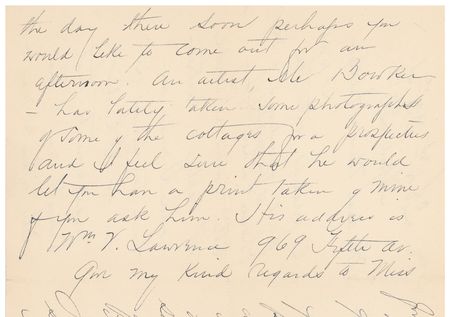 the day there soon perhaps you
would like to come out for an
afternoon. An artist, Mr Bowker
- has lately taken some photographs
of some of the cottages for a prospectus
and I feel sure that he would
let you have a print taken of mine
if you ask him. His address is
Wm V. Lawrence 969 Fifth Av.
Give my kind regards to Miss